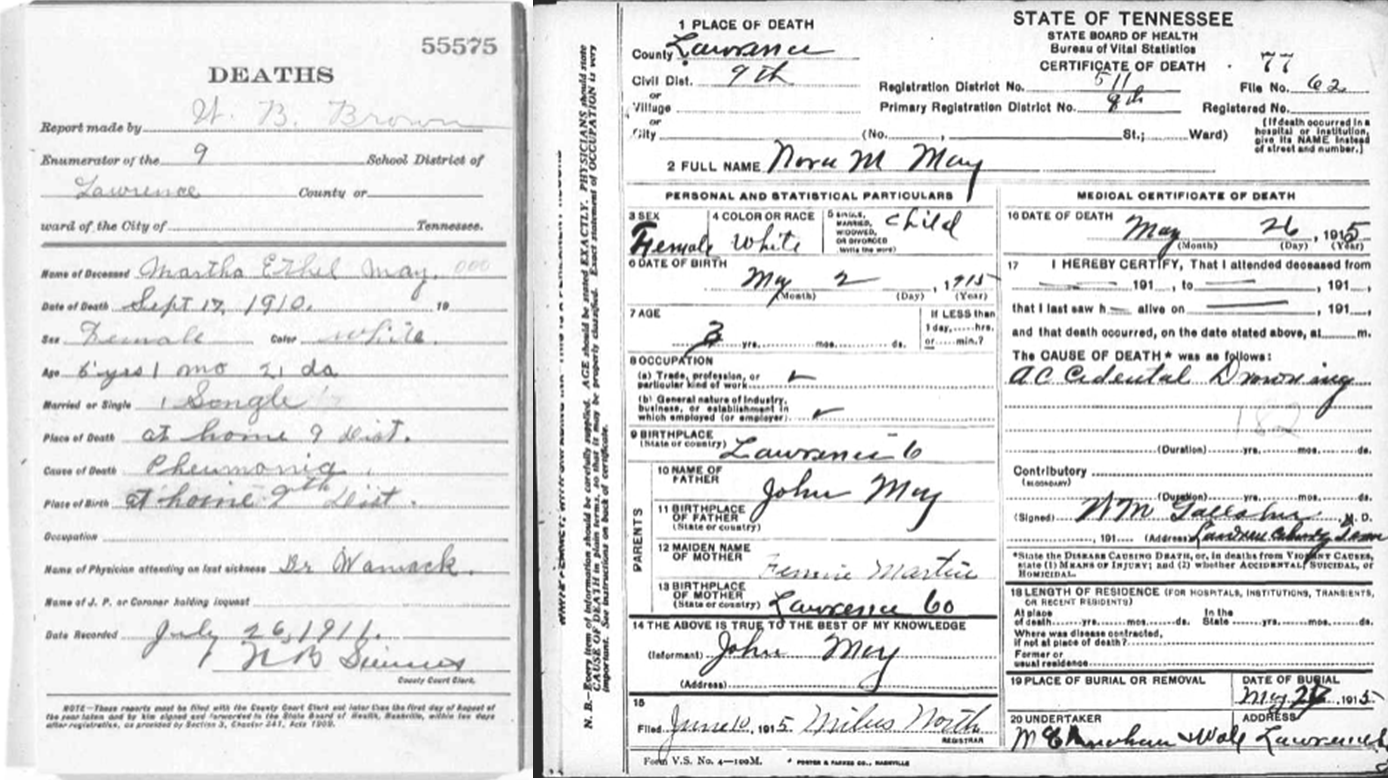 55575
DEATHS
Report made by W. B. Brown
Enumerator of the 9 School District of
Lawrence County or
ward of the City of Tennessee.
Name of Deceased Martha Ethel May. 000
Date of Death Sept 17, 1910. 19
Sex Female Color white.
Age 6 yrs 1 mo 21 da
Married or Single Songle
Place of Death at home 9 Dist.
Cause of Death Pheumonia
Place of Birth at home 9th Dist.
Occupation
Name of Physician attending on last sickness Dr Wamack.
Name of J. P. or Coroner holding inquest
Date Recorded July 26, 1911.
County Court Clerk.
NOTE—These reports must be filed with the County Court Clerk not later than the first day of August of
the year taken and by him signed and forwarded to the State Board of Health, Nashville, within ten days
after registration, as provided by Section 3, Chapter 341, Acts 1909.
N. B.—Every item of information should be carefully supplied. AGE should be stated EXACTLY. PHYSICIANS should state
CAUSE OF DEATH in plain terms, so that it may be properly classified. Exact statement of OCCUPATION is very
important. See instructions on back of certificate.
STATE OF TENNESSEE
STATE BOARD OF HEALTH
Bureau of Vital Statistics
CERTIFICATE OF DEATH
77
1 PLACE OF DEATH
County Lawrence
Civil Dist. 9th
or
Village
or
City (No. , St.; Ward)
Registration District No. 511 File No. 62
Primary Registration District No. 9th Registered No.
(If death occurred in a
hospital or institution,
give its NAME instead
of street and number.)
2 FULL NAME Nora M May
PERSONAL AND STATISTICAL PARTICULARS
3 SEX
Female
4 COLOR OR RACE
White
5 SINGLE,
MARRIED,
WIDOWED,
OR DIVORCED
(Write the word)
Child
6 DATE OF BIRTH
May 2, 1915
(Month) (Day) (Year)
7 AGE
3 yrs. mos. ds.
If LESS than
1 day, hrs.
or min.?
8 OCCUPATION
(a) Trade, profession, or
particular kind of work
(b) General nature of industry,
business, or establishment in
which employed (or employer)
9 BIRTHPLACE
(State or country) Lawrence Co
PARENTS
10 NAME OF
FATHER
John May
11 BIRTHPLACE
OF FATHER
(State or country)
12 MAIDEN NAME
OF MOTHER
Fennie Martin
13 BIRTHPLACE
OF MOTHER
(State or country) Lawrence Co
14 THE ABOVE IS TRUE TO THE BEST OF MY KNOWLEDGE
(Informant) John May
(Address)
15
Filed June 10, 1915 Milus North
REGISTRAR
MEDICAL CERTIFICATE OF DEATH
16 DATE OF DEATH
May 26, 1915
(Month) (Day) (Year)
17 I HEREBY CERTIFY, That I attended deceased from
191 , to , 191 ,
that I last saw h alive on , 191 ,
and that death occurred, on the date stated above, at m.
The CAUSE OF DEATH* was as follows:
Accidental Drowning
182
(Duration) yrs. mos. ds.
Contributory
(SECONDARY)
(Duration) yrs. mos. ds.
(Signed) M. D.
, 191 (Address)
*State the DISEASE CAUSING DEATH, or, in deaths from VIOLENT CAUSES,
state (1) MEANS OF INJURY; and (2) whether ACCIDENTAL, SUICIDAL, or
HOMICIDAL.
18 LENGTH OF RESIDENCE (FOR HOSPITALS, INSTITUTIONS, TRANSIENTS,
OR RECENT RESIDENTS)
At place
of death yrs. mos. ds.
In the
State yrs. mos. ds.
Where was disease contracted,
if not at place of death?
Former or
usual residence
19 PLACE OF BURIAL OR REMOVAL
DATE OF BURIAL
May 27, 1915
20 UNDERTAKER
ADDRESS
Form V.S. No. 4—100M.
PORTER & PARKES CO., NASHVILLE